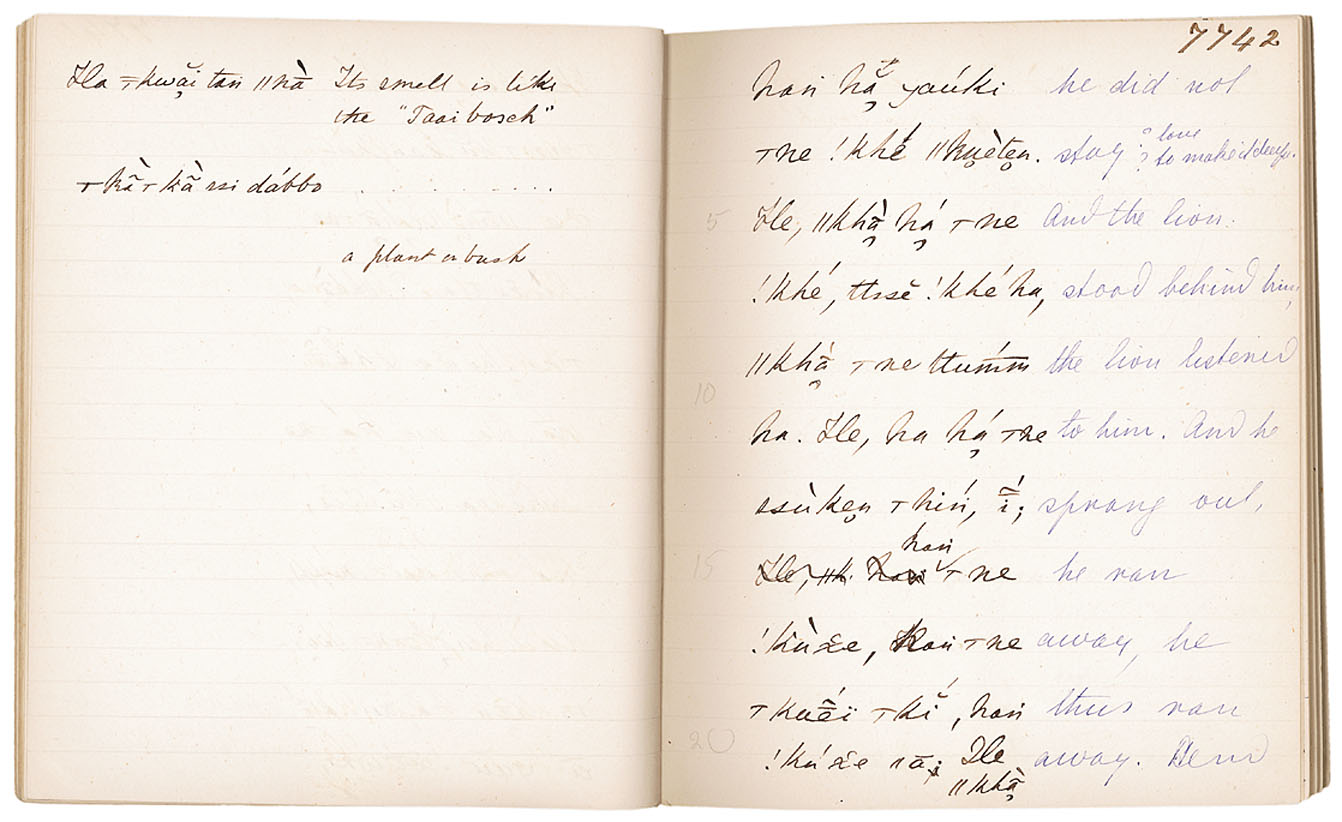 Ha ⊤kwằi tan ǁnā̀ Its smell is like
the "Taaibosch"
⊤kā̀ ⊤kā̀ ssi dábbo . . . . . . . .
a plant or bush
7742
han hă yaúki he did not
⊤ne !khé ǁkuèten. stay ? love to make it deep.
5 He, ǁkhā̀ há ⊤ne And the lion
!khé, ttssĕ !khé ha, stood behind him,
ǁkhā̀ ⊤ne ttúm̄m the lion listened
10
ha. He, ha há ⊤ne to him. And he
ssùken ⊤hin, ī́; sprang out,
han
15 He, ǁk han ⊤ne he ran
!kùẋe, han ⊤ne away, he
⊤kuā́ï ⊤kĭ́, han thus ran
20 !kúẋe ꞁā; He away. And
ǁkhā̀